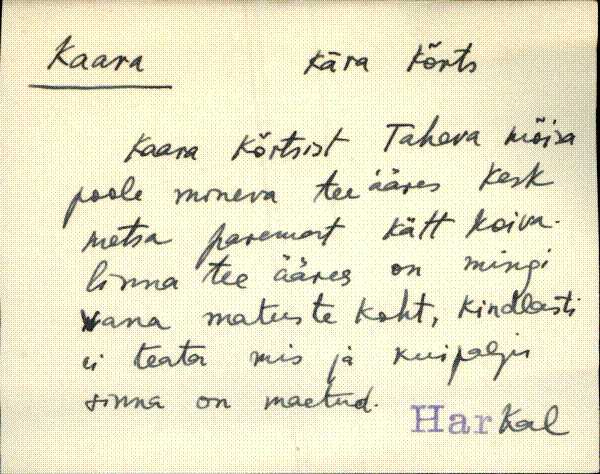 Kaara Kāra Kõrts
Kaara Kõrtsist Taheva mõisa
poole mineva tee ääres kesk
metsa paremat kätt Koiva-
linna tee ääres on mingi
vana matuste koht, kindlasti
ei teata mis ja kuipalju
sinna on maetud.
Har Kal